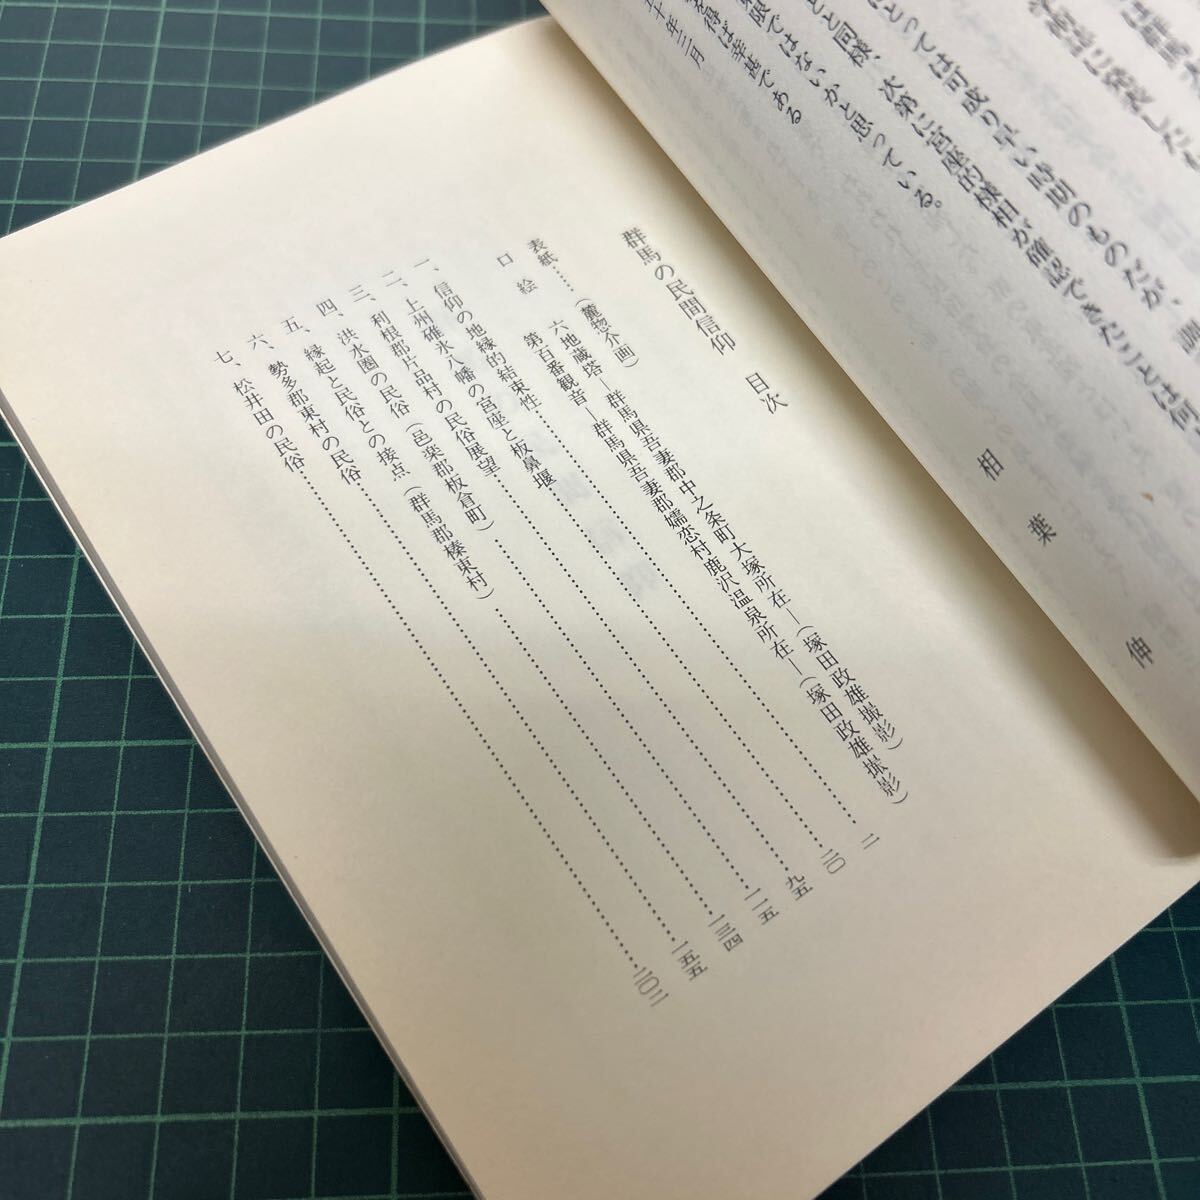 は可成り早い時期のものだが、調
と同様、次第に宮座的様相が確認できたことは何
限ではないかと思っている。
を得ば幸甚である
十年三月
相葉伸
群馬の民間信仰 目次
表紙……(麓惣介画)
口絵 六地蔵塔―群馬県吾妻郡中之条町大塚所在―(塚田政雄撮影)
第百番観音―群馬県吾妻郡嬬恋村鹿沢温泉所在―(塚田政雄撮影)
一、信仰の地縁的結束性……二
二、上州碓氷八幡の宮座と板鼻堰……二〇
三、利根郡片品村の民俗展望……九五
四、洪水圏の民俗(邑楽郡板倉町)……一一五
五、縁起と民俗との接点(群馬郡榛東村)……一三四
六、勢多郡東村の民俗……一五五
七、松井田の民俗……二〇二